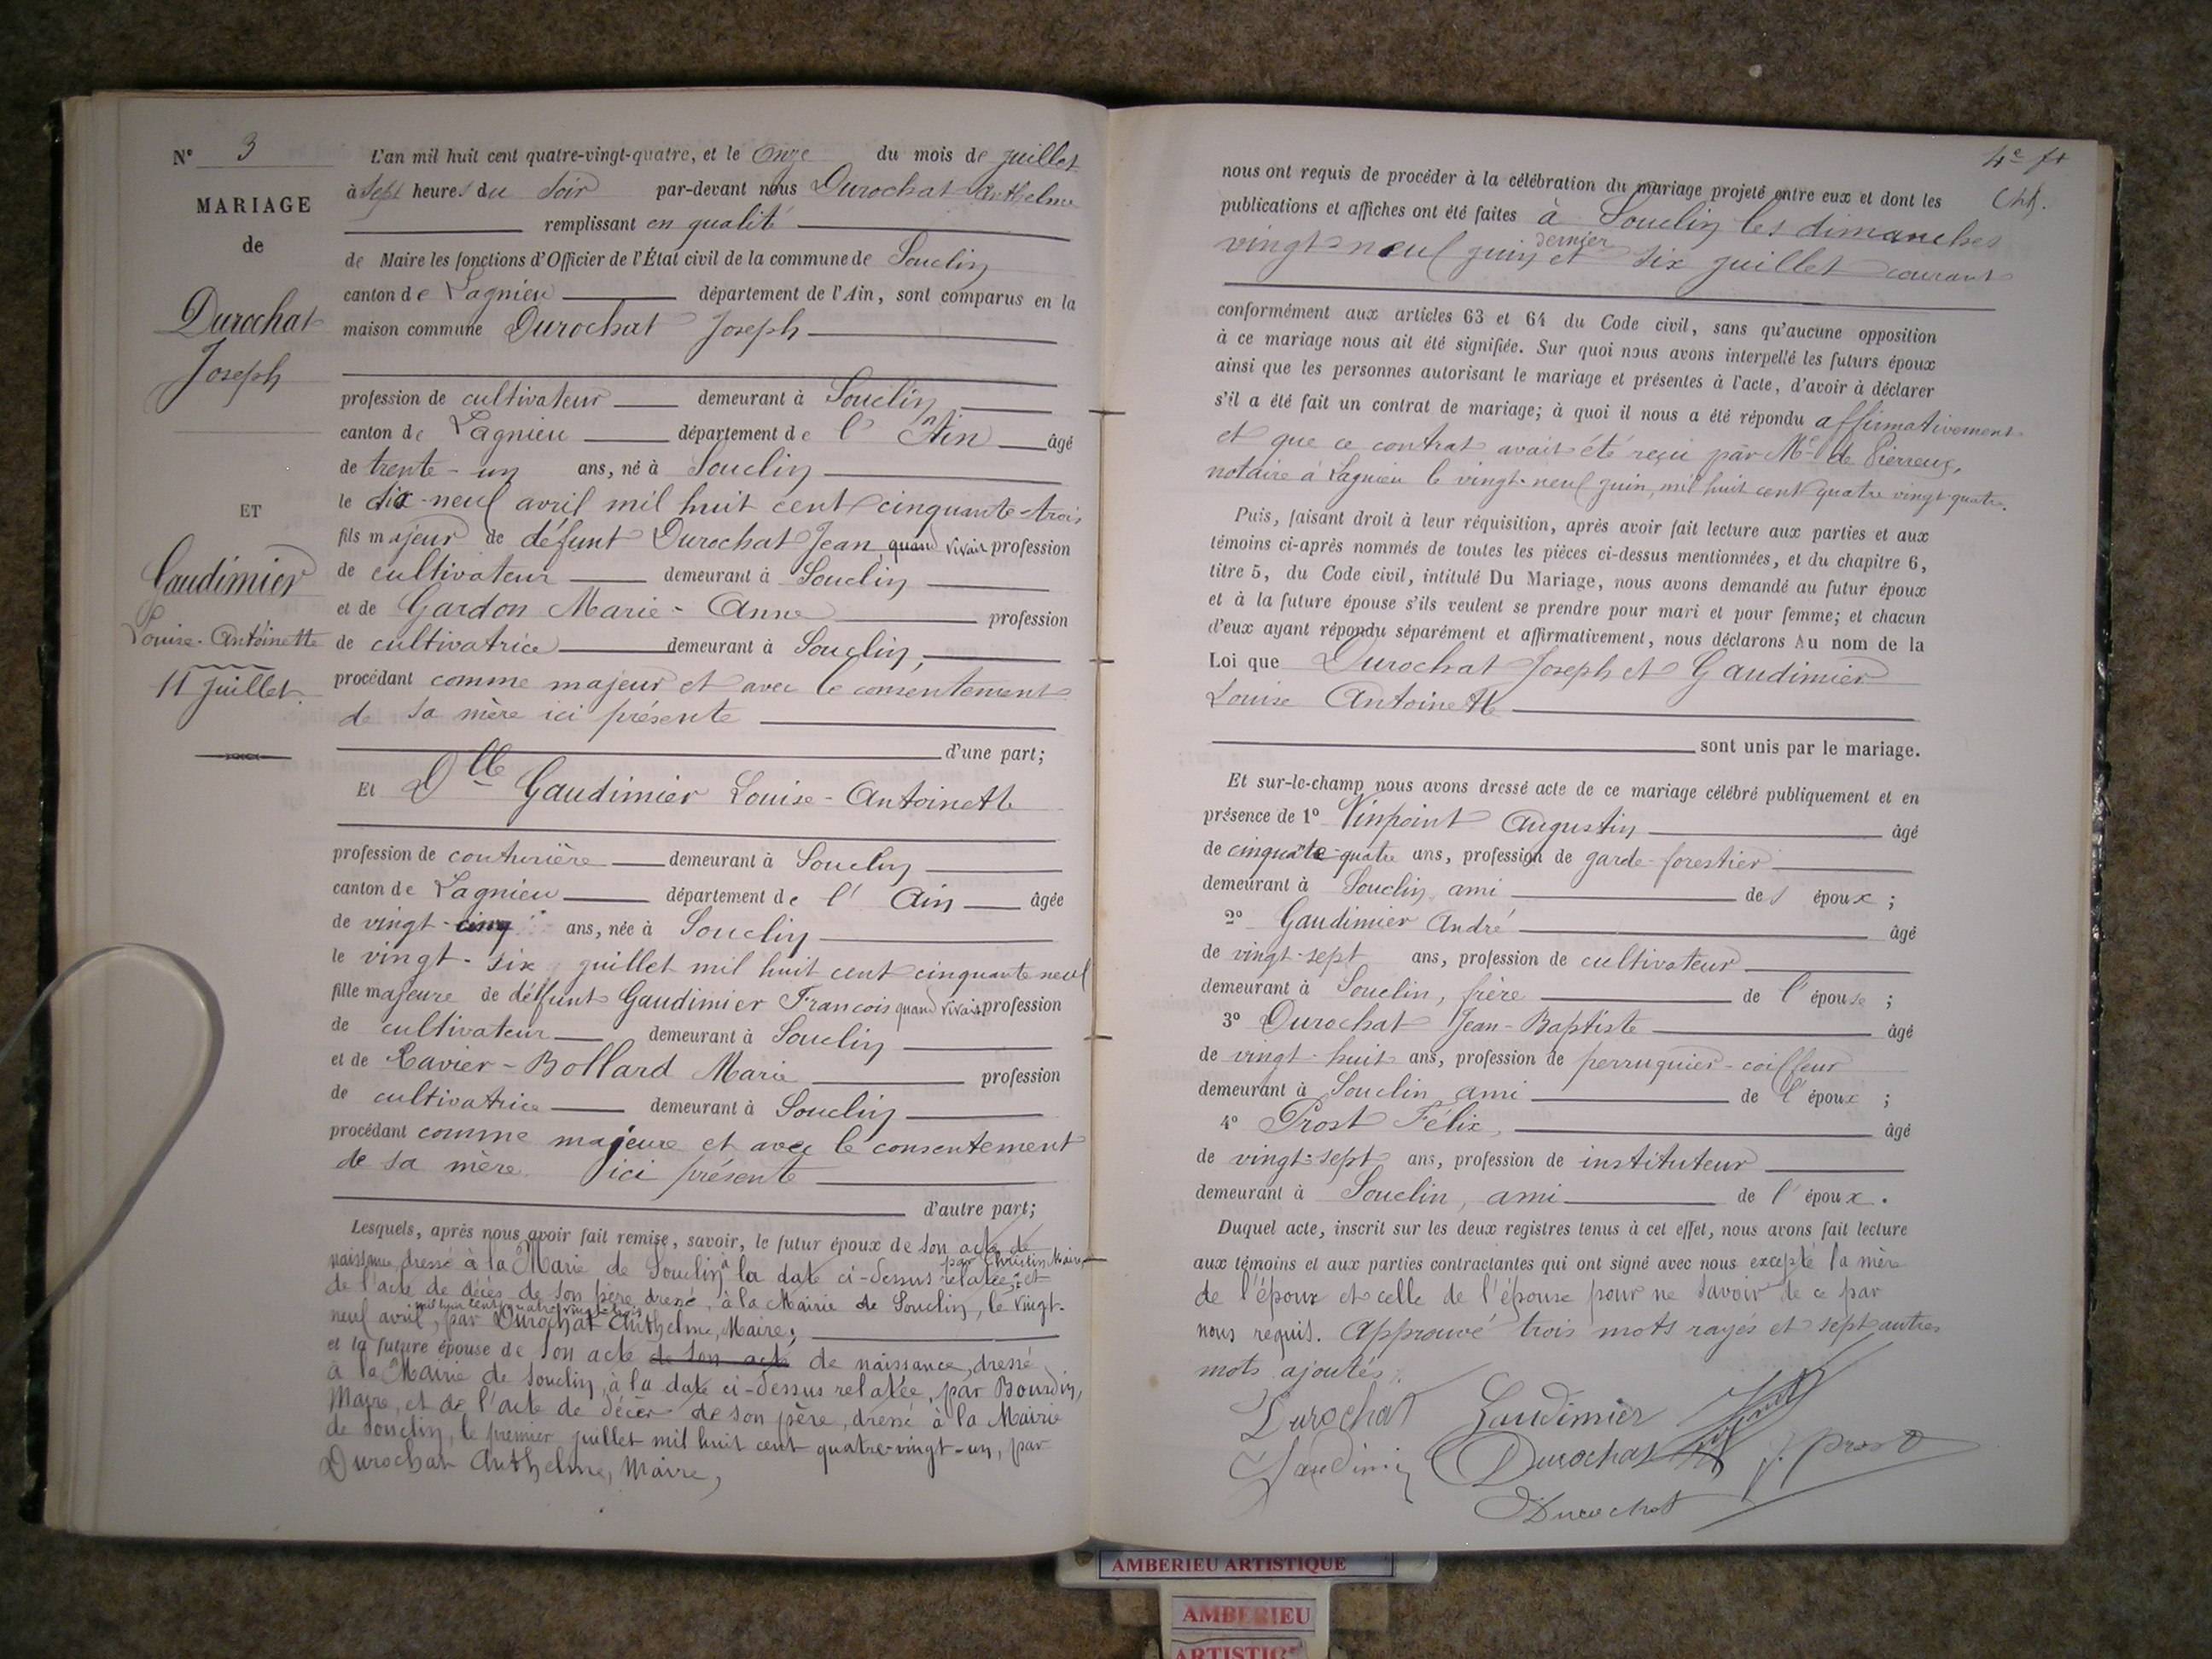 N° 3
MARIAGE
de
Durochat
Joseph
ET
Gaudimier
Louise-Antoinette
11 Juillet.
L'an mil huit cent quatre-vingt-quatre, et le onze du mois de juillet
à sept heures du soir par-devant nous Durochat Anthelme
remplissant en qualité
de Maire les fonctions d'Officier de l'État civil de la commune de Souclin
canton de Lagnieu département de l'Ain, sont comparus en la
maison commune Durochat Joseph
profession de cultivateur demeurant à Souclin
canton de Lagnieu département de l'Ain âgé
de trente-un ans, né à Souclin
le dix-neuf avril mil huit cent cinquante-trois
fils majeur de défunt Durochat Jean, quand vivait profession
de cultivateur demeurant à Souclin
et de Gardon Marie-Anne profession
de cultivatrice demeurant à Souclin,
procédant comme majeur et avec le consentement
de sa mère ici présente
d'une part;
Et Dlle Gaudimier Louise-Antoinette
profession de couturière demeurant à Souclin
canton de Lagnieu département de l'Ain âgée
de vingt-cinq ans, née à Souclin
le vingt-six juillet mil huit cent cinquante neuf
fille majeure de défunt Gaudimier Francois quand vivait profession
de cultivateur demeurant à Souclin
et de Ravier-Bollard Marie profession
de cultivatrice demeurant à Souclin
procédant comme majeure et avec le consentement
de sa mère ici présente
d'autre part;
Lesquels, après nous avoir fait remise, savoir, le futur époux de son acte de
naissance, dressé à la Mairie de Souclin à la date ci-dessus relatée, par Christin, Maire, et
de l'acte de décès de son père dressé, à la Mairie de Souclin, le vingt-
neuf avril, mil huit cent quatre vingt-trois par Durochat Anthelme, Maire;
et la future épouse de son acte de son acte de naissance, dressé
à la Mairie de Souclin, à la date ci-dessus relatée, par Bourdin,
Maire, et de l'acte de décès de son père, dressé à la Mairie
de Souclin, le premier juillet mil huit cent quatre-vingt-un, par
Durochat Anthelme, Maire,
4e
nous ont requis de procéder à la célébration du mariage projeté entre eux et dont les
publications et affiches ont été faites à Souclin les dimanches
vingt-neuf juin dernier et six juillet courant
conformément aux articles 63 et 64 du Code civil, sans qu'aucune opposition
à ce mariage nous ait été signifiée. Sur quoi nous avons interpellé les futurs époux
ainsi que les personnes autorisant le mariage et présentes à l'acte, d'avoir à déclarer
s'il a été fait un contrat de mariage; à quoi il nous a été répondu affirmativement
et que ce contrat avait été reçu par Me de Pierreux,
notaire à Lagnieu le vingt-neuf juin, mil huit cent quatre vingt-quatre.
Puis, faisant droit à leur réquisition, après avoir fait lecture aux parties et aux
témoins ci-après nommés de toutes les pièces ci-dessus mentionnées, et du chapitre 6,
titre 5, du Code civil, intitulé Du Mariage, nous avons demandé au futur époux
et à la future épouse s'ils veulent se prendre pour mari et pour femme; et chacun
d'eux ayant répondu séparément et affirmativement, nous déclarons Au nom de la
Loi que Durochat Joseph et Gaudimier
Louise Antoinette
sont unis par le mariage.
Et sur-le-champ nous avons dressé acte de ce mariage célébré publiquement et en
présence de 1° Vinpoint Augustin âgé
de cinquante-quatre ans, profession de garde-forestier
demeurant à Souclin ami des époux;
2° Gaudimier André âgé
de vingt-sept ans, profession de cultivateur
demeurant à Souclin, frère de l'épouse;
3° Durochat Jean-Baptiste âgé
de vingt-huit ans, profession de perruquier-coiffeur
demeurant à Souclin ami de l'époux;
4° Prost Félix, âgé
de vingt-sept ans, profession de instituteur
demeurant à Souclin, ami de l'époux.
Duquel acte, inscrit sur les deux registres tenus à cet effet, nous avons fait lecture
aux témoins et aux parties contractantes qui ont signé avec nous excepté la mère
de l'époux et celle de l'épouse pour ne savoir de ce par
nous requis. Approuvé trois mots rayés et sept autres
mots ajoutés.
Durochat Gaudimier
Gaudimier Durochat f. prost
Durochat
AMBERIEU ARTISTIQUE
AMBERIEU
ARTISTIQUE